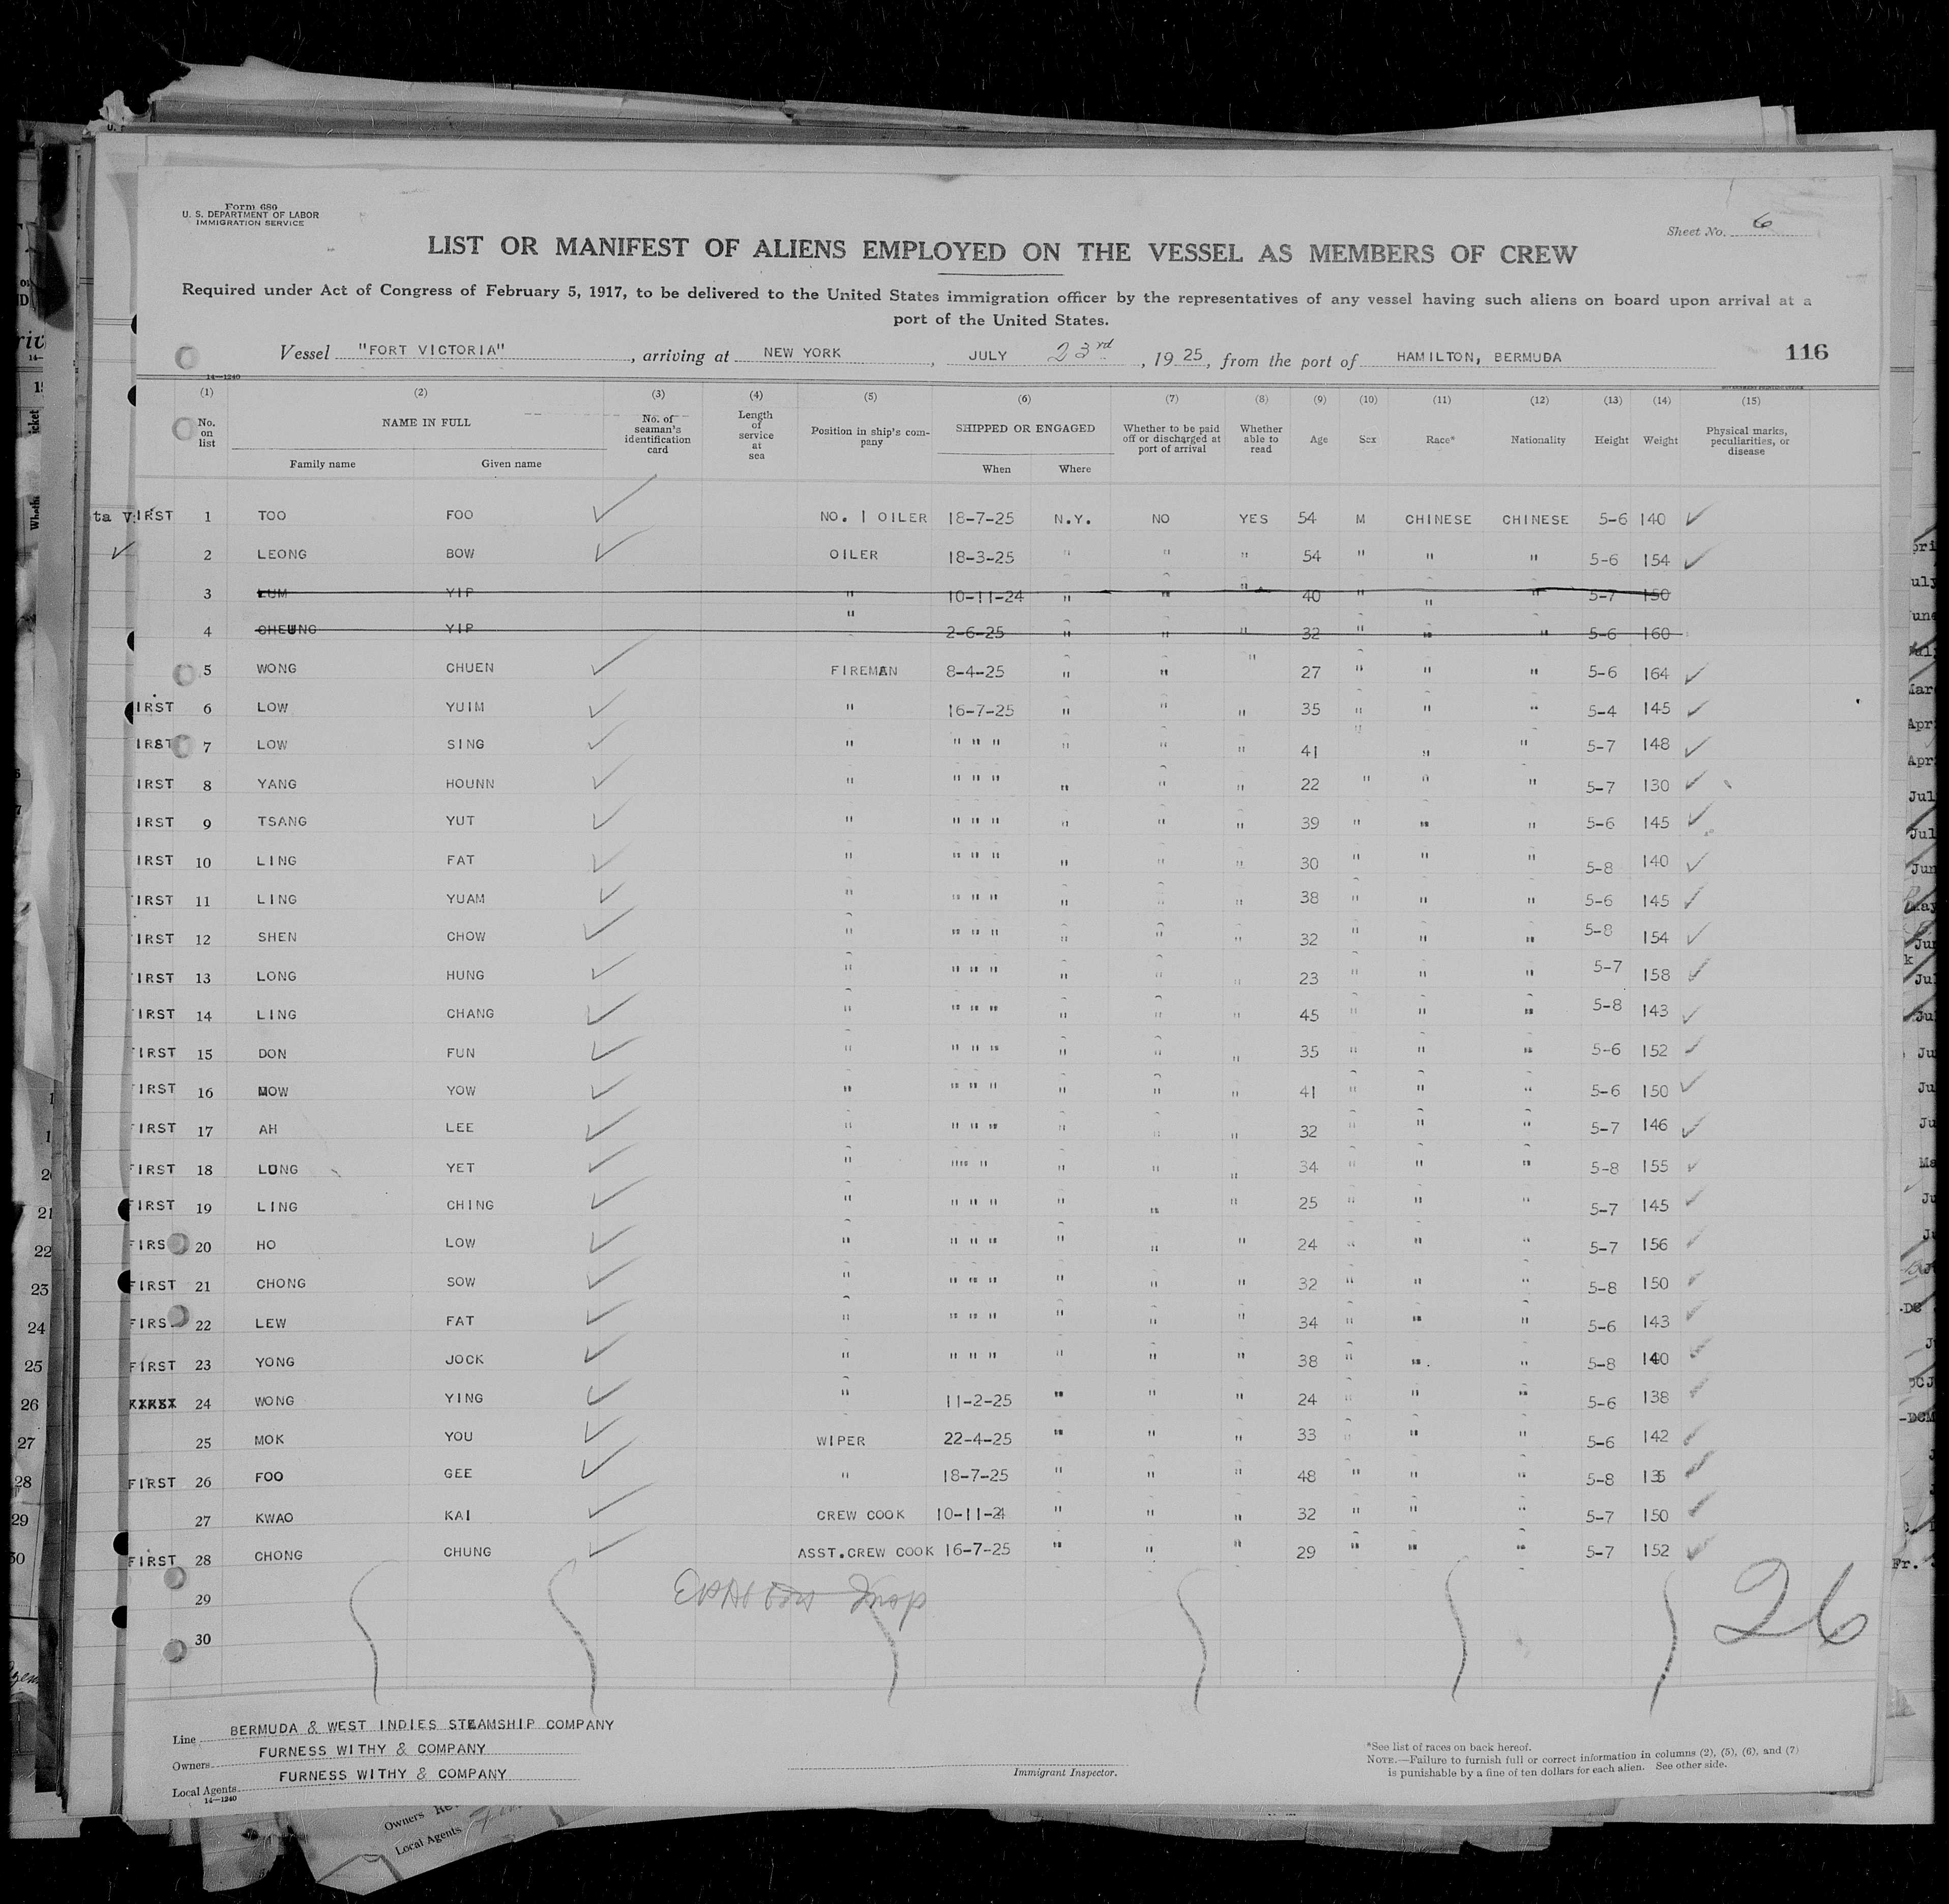 Form 680
U. S. DEPARTMENT OF LABOR
IMMIGRATION SERVICE
Sheet No. 6
LIST OR MANIFEST OF ALIENS EMPLOYED ON THE VESSEL AS MEMBERS OF CREW
Required under Act of Congress of February 5, 1917, to be delivered to the United States immigration officer by the representatives of any vessel having such aliens on board upon arrival at a
port of the United States.
Vessel "FORT VICTORIA", arriving at NEW YORK, JULY 23rd, 1925, from the port of HAMILTON, BERMUDA 116
14—1240
(1) (2) (3) (4) (5) (6) (7) (8) (9) (10) (11) (12) (13) (14) (15)
No. on list NAME IN FULL Family name Given name No. of seaman's identification card Length of service at sea Position in ship's company SHIPPED OR ENGAGED When Where Whether to be paid off or discharged at port of arrival Whether able to read Age Sex Race* Nationality Height Weight Physical marks, peculiarities, or disease
IRST 1 TOO FOO NO. 1 OILER 18-7-25 N.Y. NO YES 54 M CHINESE CHINESE 5-6 140
2 LEONG BOW OILER 18-3-25 " " " 54 " " " 5-6 154
3 LUM YIP " 10-11-24 " " " 40 " " " 5-7 150
4 CHEUNG YIP " 2-6-25 " " " 32 " " " 5-6 160
5 WONG CHUEN FIREMAN 8-4-25 " " " 27 " " " 5-6 164
IRST 6 LOW YUIM " 16-7-25 " " " 35 " " " 5-4 145
IRST 7 LOW SING " " " " " " " 41 " " " 5-7 148
IRST 8 YANG HOUNN " " " " " " " 22 " " " 5-7 130
IRST 9 TSANG YUT " " " " " " " 39 " " " 5-6 145
IRST 10 LING FAT " " " " " " " 30 " " " 5-8 140
IRST 11 LING YUAM " " " " " " " 38 " " " 5-6 145
FIRST 12 SHEN CHOW " " " " " " " 32 " " " 5-8 154
FIRST 13 LONG HUNG " " " " " " " 23 " " " 5-7 158
FIRST 14 LING CHANG " " " " " " " 45 " " " 5-8 143
FIRST 15 DON FUN " " " " " " " 35 " " " 5-6 152
FIRST 16 MOW YOW " " " " " " " 41 " " " 5-6 150
FIRST 17 AH LEE " " " " " " " 32 " " " 5-7 146
FIRST 18 LUNG YET " " " " " " " 34 " " " 5-8 155
FIRST 19 LING CHING " " " " " " " 25 " " " 5-7 145
FIRS 20 HO LOW " " " " " " " 24 " " " 5-7 156
FIRST 21 CHONG SOW " " " " " " " 32 " " " 5-8 150
FIRS 22 LEW FAT " " " " " " " 34 " " " 5-6 143
FIRST 23 YONG JOCK " " " " " " " 38 " " " 5-8 140
XXXXX 24 WONG YING " 11-2-25 " " " 24 " " " 5-6 138
25 MOK YOU WIPER 22-4-25 " " " 33 " " " 5-6 142
FIRST 26 FOO GEE " 18-7-25 " " " 48 " " " 5-8 135
27 KWAO KAI CREW COOK 10-11-24 " " " 32 " " " 5-7 150
FIRST 28 CHONG CHUNG ASST.CREW COOK 16-7-25 " " " 29 " " " 5-7 152
29
30
26
Line BERMUDA & WEST INDIES STEAMSHIP COMPANY
Owners FURNESS WITHY & COMPANY
Local Agents FURNESS WITHY & COMPANY
14—1240
Immigrant Inspector.
*See list of races on back hereof.
NOTE.—Failure to furnish full or correct information in columns (2), (5), (6), and (7)
is punishable by a fine of ten dollars for each alien. See other side.
Owners
Local Agents